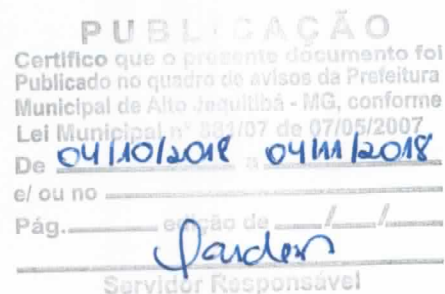 PUBLICAÇÃO
Certifico que o presente documento foi
Publicado no quadro de avisos da Prefeitura
Municipal de Alto Jequitibá - MG, conforme
Lei Municipal nº 881/07 de 07/05/2007
De 04/10/2018 a 04/11/2018
e/ ou no
Pág. edição de / /
Servidor Responsável